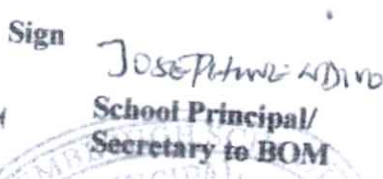 Sign
JOSEPHINE NDIVO
School Principal/
Secretary to BOM